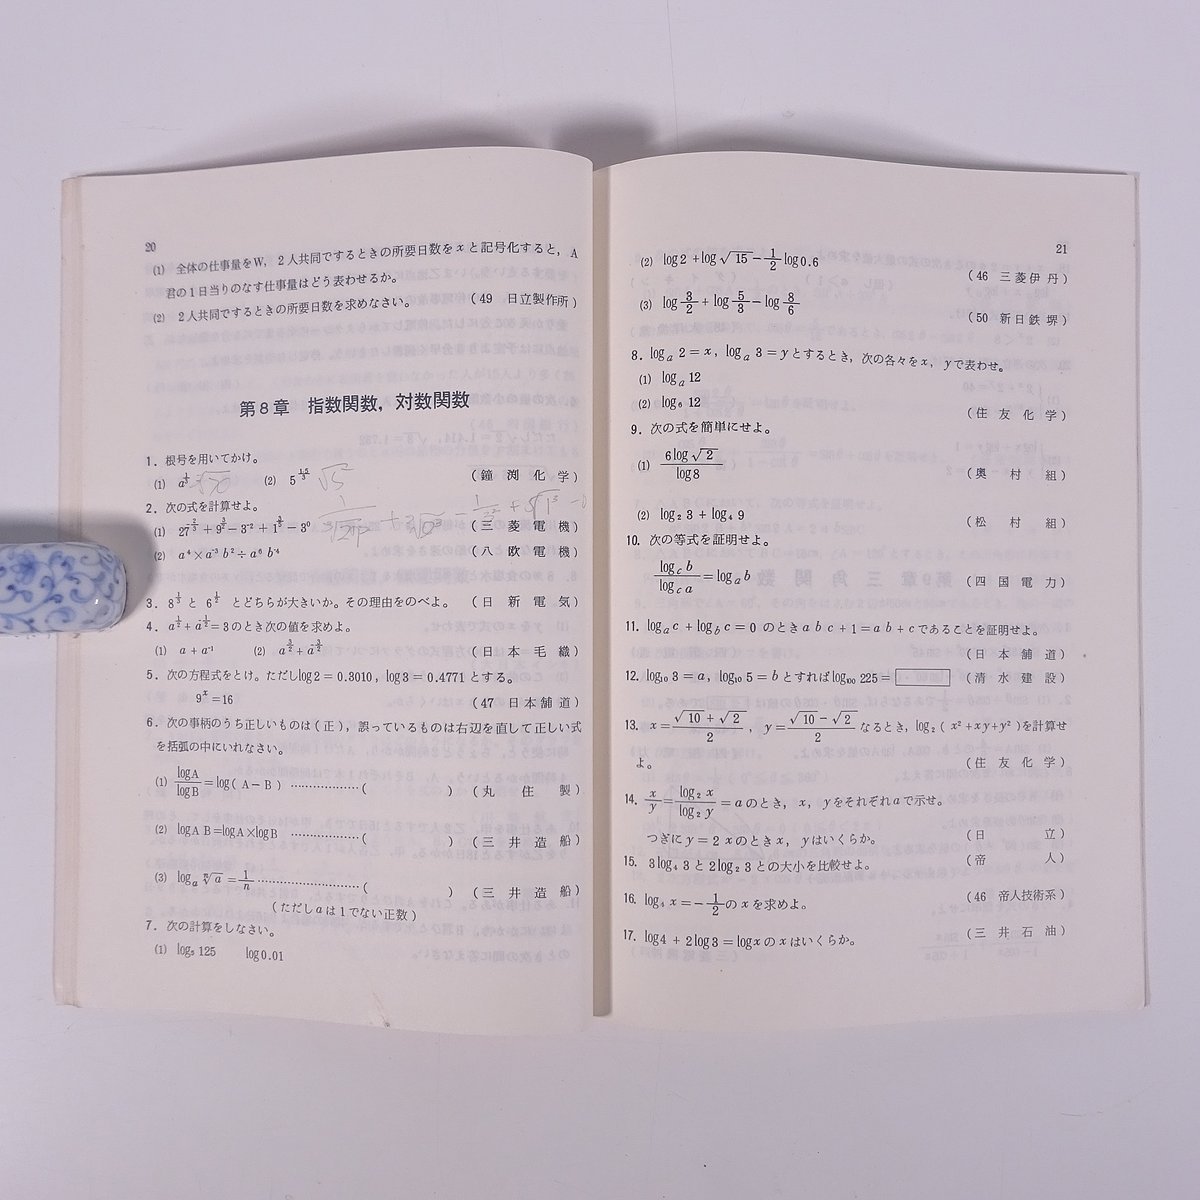 20
(1) 全体の仕事量をW，2人共同でするときの所要日数をxと記号化すると，A
君の1日当りのなす仕事量はどう表わせるか。
(2) 2人共同でするときの所要日数を求めなさい。 (49 日立製作所)
第8章 指数関数，対数関数
1. 根号を用いてかけ。
(1) (2) (鐘淵化学)
2. 次の式を計算せよ。
(1) (三菱電機)
(2) a⁴×a⁻³b²÷a⁶b⁻⁴ (八欧電機)
3. 8^{1/3} と 6^{1/2} とどちらが大きいか。その理由をのべよ。 (日新電気)
4. a^{1/2}+a^{-1/2}=3のとき次の値を求めよ。
(1) a+a⁻¹ (2) a^{3/2}+a^{-3/2} (日本毛織)
5. 次の方程式をとけ。ただしlog2=0.3010，log3=0.4771とする。
9ˣ=16 (47 日本舗道)
6. 次の事柄のうち正しいものは(正)，誤っているものは右辺を直して正しい式
を括弧の中にいれなさい。
(1) logA/logB=log(A−B) ………………( ) (丸住製)
(2) logAB=logA×logB ………………( ) (三井造船)
(3) logₐ ⁿ√a=1/n ……………………( ) (三井造船)
(ただしaは1でない正数)
7. 次の計算をしなさい。
(1) log₅125 log0.01
21
(2) log2+log√15−1/2 log0.6
(46 三菱伊丹)
(3) log 3/2+log 5/3−log 8/6
(50 新日鉄堺)
8. logₐ2=x，logₐ3=yとするとき，次の各々をx，yで表わせ。
(1) logₐ12
(2) log₆12 (住友化学)
9. 次の式を簡単にせよ。
(1) 6log√2/log8 (奥村組)
(2) log₂3+log₄9 (松村組)
10. 次の等式を証明せよ。
log_c b/log_c a=logₐb (四国電力)
11. logₐc+log_b c=0 のときabc+1=ab+cであることを証明せよ。
(日本舗道)
12. log₁₀3=a，log₁₀5=bとすればlog₁₀₀225= (清水建設)
13. x=(√10+√2)/2，y=(√10−√2)/2 なるとき，log₂(x²+xy+y²)を計算せ
よ。 (住友化学)
14. x/y=log₂x/log₂y=aのとき，x，yをそれぞれaで示せ。
つぎにy=2xのときx，yはいくらか。 (日立)
15. 3log₄3と2log₂3との大小を比較せよ。 (帝人)
16. log₄x=−1/2のxを求めよ。 (46 帝人技術系)
17. log4+2log3=logxのxはいくらか。 (三井石油)